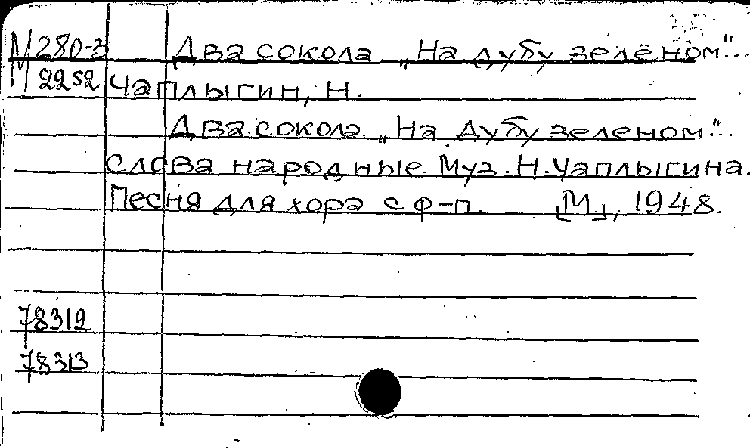 М280-3 Два сокола „На дубу зелёном“..
М2252 Чаплыгин, Н.
Два сокола „На дубу зеленом“..
слова народные. Муз. Н. Чаплыгина.
Песня для хора с ф-п. [М], 1948.
78312
78313